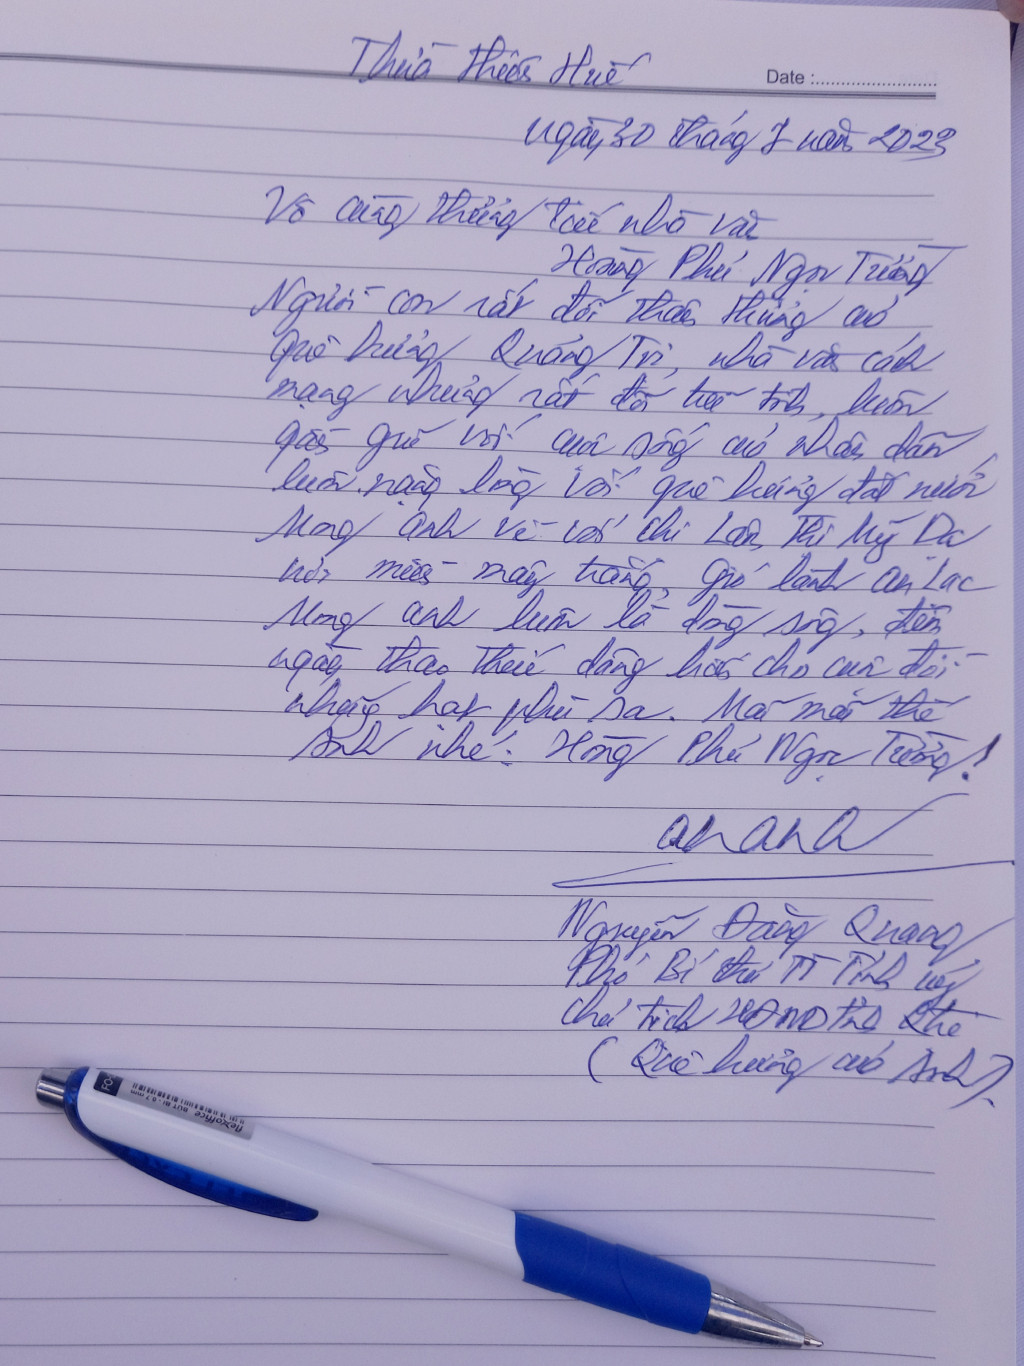 Thừa Thiên Huế
Date :
ngày 30 tháng 7 năm 2023
Vô cùng thương tiếc nhà văn
Hoàng Phủ Ngọc Tường
Người con rất đỗi thân thương của
quê hương Quảng Trị, nhà văn cách
mạng nhưng rất đỗi trữ tình, luôn
gần gũi với cuộc sống của nhân dân,
luôn nặng lòng với quê hương đất nước
Mong anh về với chị Lâm Thị Mỹ Dạ
nơi miền mây trắng, gió lành an lạc
Mong anh luôn là dòng sông, đêm
ngày thao thiết dâng hiến cho cuộc đời
những hạt phù sa. Mãi mãi thế
Anh nhé: Hoàng Phủ Ngọc Tường!
Nguyễn Đăng Quang
Phó Bí thư TT Tỉnh ủy
Chủ tịch HĐND tỉnh QTrị
(Quê hương của Anh).
flexoffice